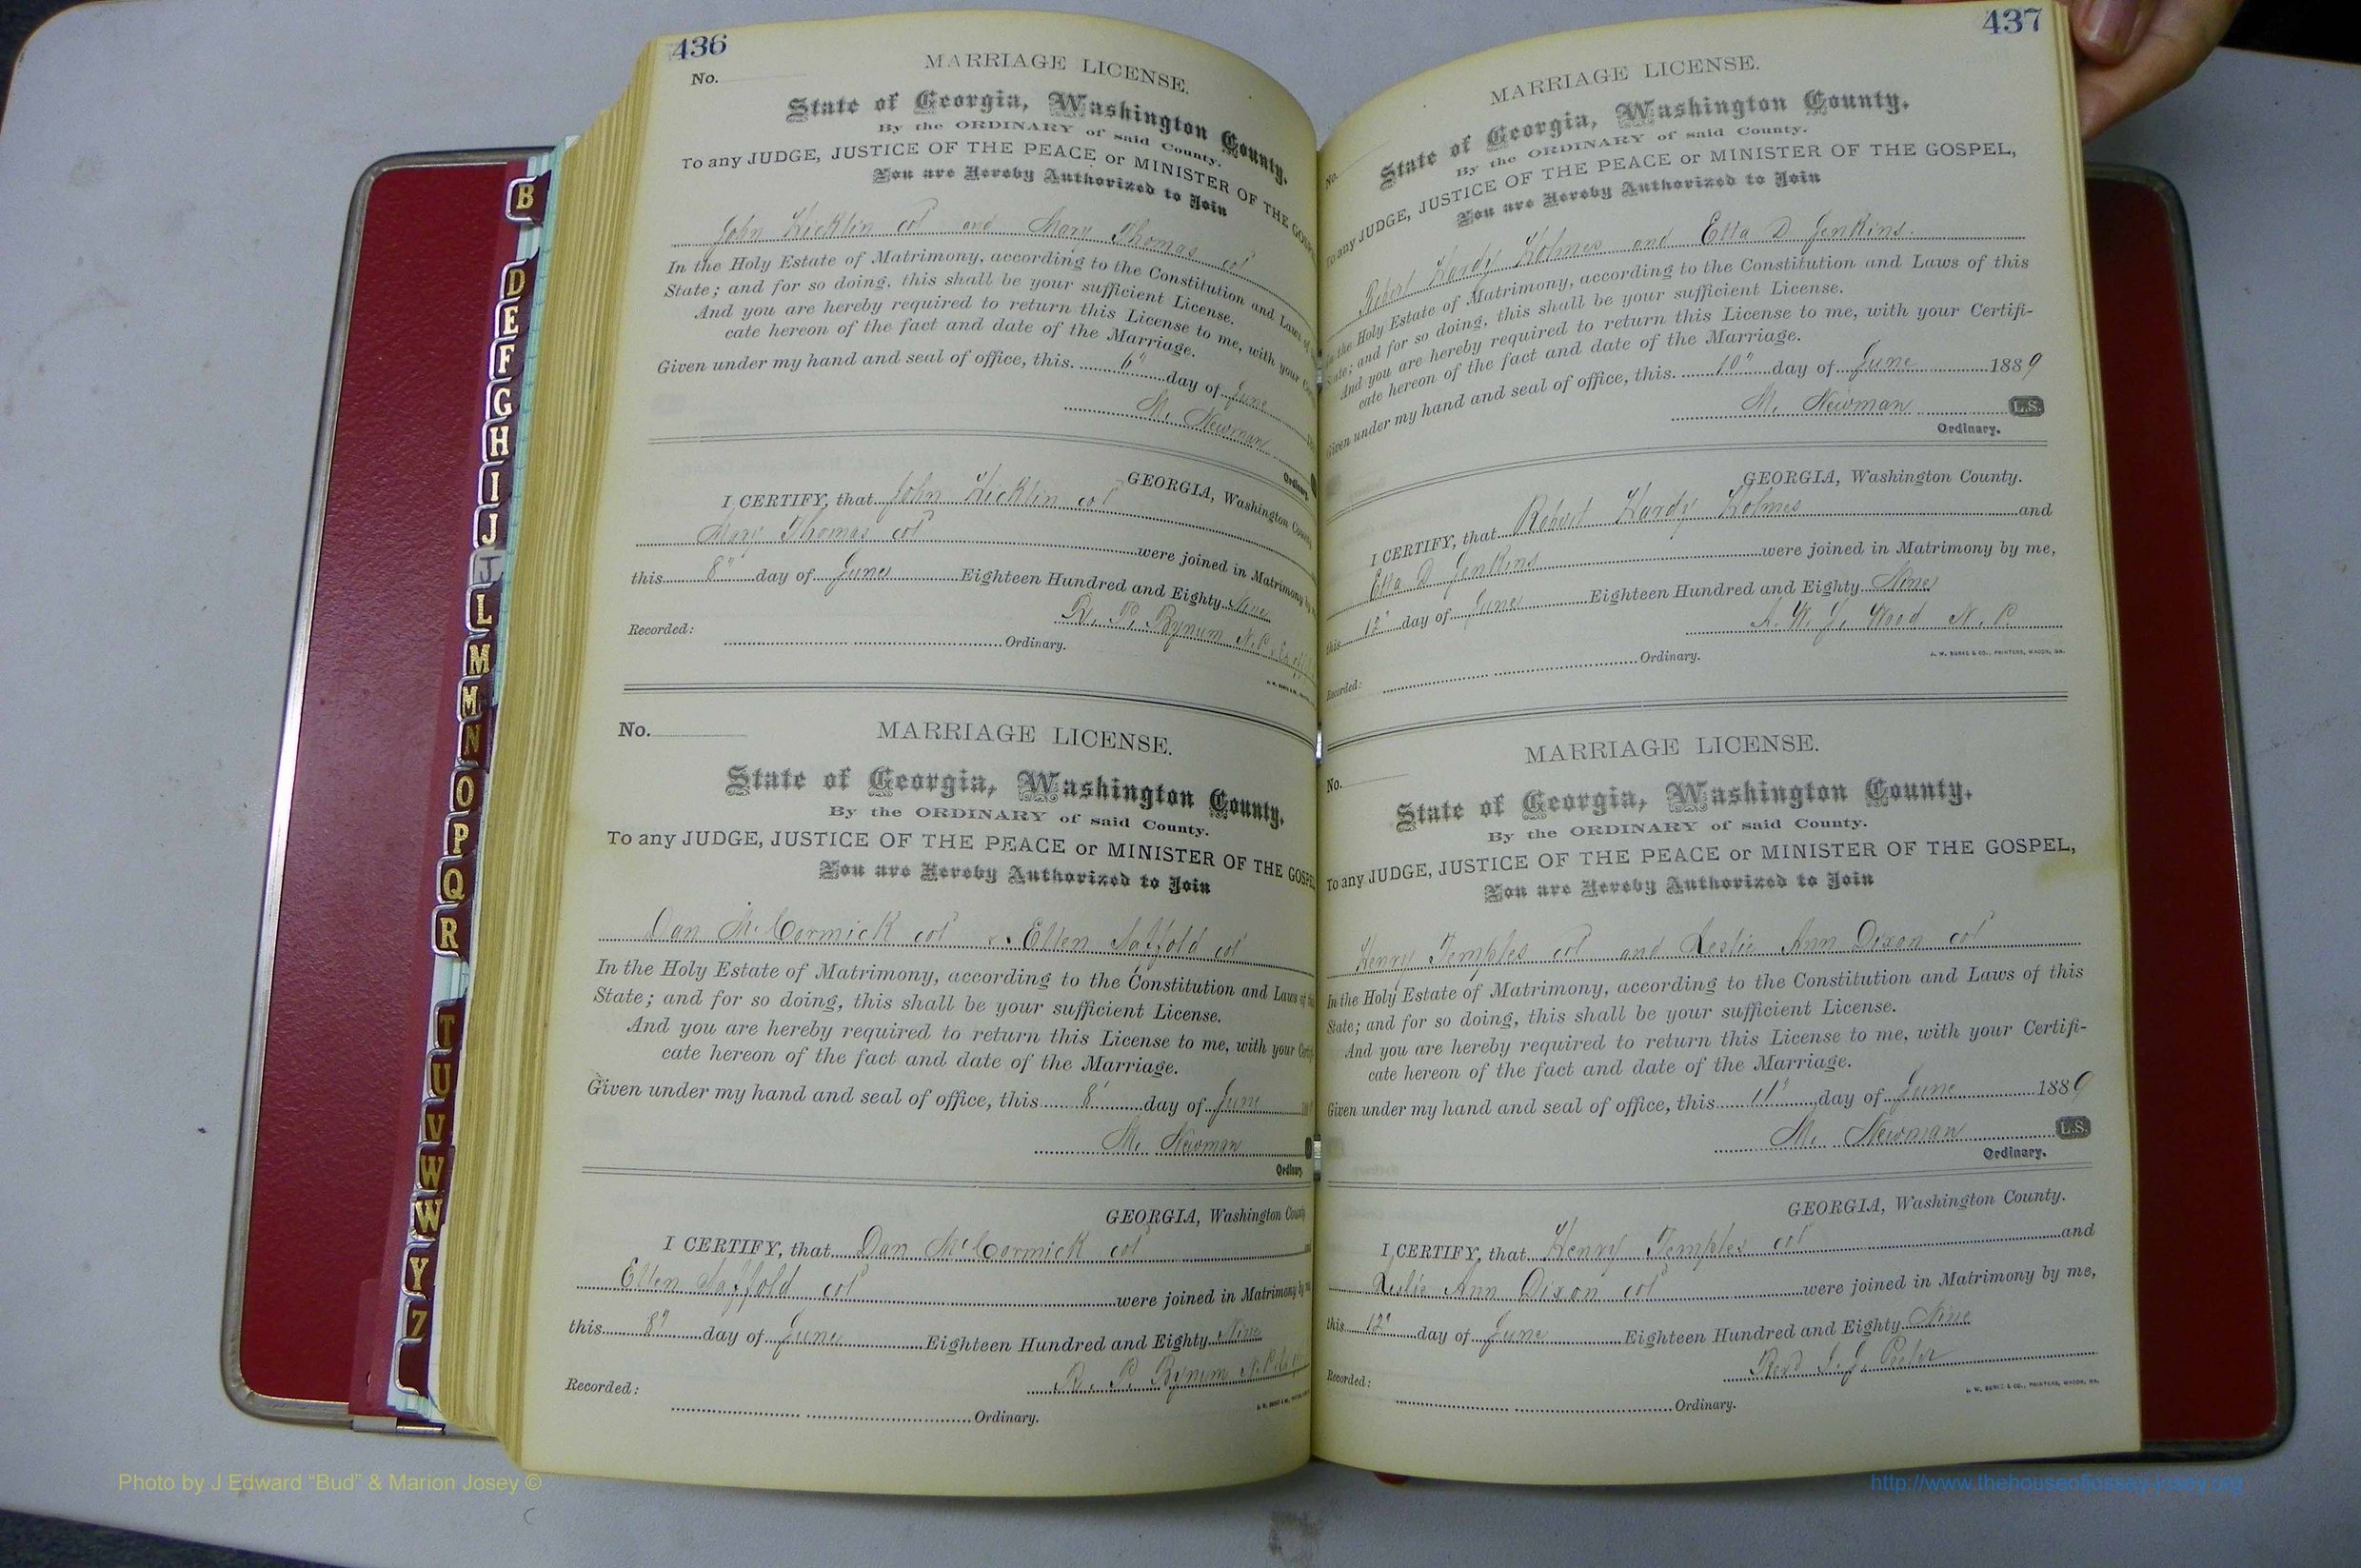 436
No.
MARRIAGE LICENSE.
State of Georgia, Washington County.
By the ORDINARY of said County.
To any JUDGE, JUSTICE OF THE PEACE or MINISTER OF THE GOSPEL
You are Hereby Authorized to Join
John Hicklin col and Mary Thomas col
In the Holy Estate of Matrimony, according to the Constitution and Laws of
State; and for so doing, this shall be your sufficient License.
And you are hereby required to return this License to me, with your
cate hereon of the fact and date of the Marriage.
Given under my hand and seal of office, this 6" day of June
M. Newman
Ordinary.
GEORGIA, Washington County
I CERTIFY, that John Hicklin col
Mary Thomas col were joined in Matrimony by
this 8" day of June Eighteen Hundred and Eighty Nine
R. P. Bynum N.P.
Recorded:
Ordinary.
No.
MARRIAGE LICENSE.
State of Georgia, Washington County.
By the ORDINARY of said County.
To any JUDGE, JUSTICE OF THE PEACE or MINISTER OF THE GOSPEL
You are Hereby Authorized to Join
Dan McCormick col & Ellen Saffold col
In the Holy Estate of Matrimony, according to the Constitution and Laws of
State; and for so doing, this shall be your sufficient License.
And you are hereby required to return this License to me, with your Certifi
cate hereon of the fact and date of the Marriage.
Given under my hand and seal of office, this 8" day of June
M. Newman
Ordinary
GEORGIA, Washington County
I CERTIFY, that Dan McCormick col
Ellen Saffold col were joined in Matrimony by me
this 8" day of June Eighteen Hundred and Eighty Nine
R. P. Bynum N.P.
Recorded:
Ordinary.
437
No.
MARRIAGE LICENSE.
State of Georgia, Washington County.
By the ORDINARY of said County.
To any JUDGE, JUSTICE OF THE PEACE or MINISTER OF THE GOSPEL,
You are Hereby Authorized to Join
Robert Hardy Holmes and Etta D Jenkins.
In the Holy Estate of Matrimony, according to the Constitution and Laws of this
State; and for so doing, this shall be your sufficient License.
And you are hereby required to return this License to me, with your Certifi-
cate hereon of the fact and date of the Marriage.
Given under my hand and seal of office, this 10" day of June 1889
M. Newman L.S.
Ordinary.
GEORGIA, Washington County.
I CERTIFY, that Robert Hardy Holmes and
Etta D Jenkins were joined in Matrimony by me,
this 12" day of June Eighteen Hundred and Eighty Nine
A. W. J. Wood N. P.
J. W. BURKE & CO., PRINTERS, MACON, GA.
Recorded:
Ordinary.
No.
MARRIAGE LICENSE.
State of Georgia, Washington County.
By the ORDINARY of said County.
To any JUDGE, JUSTICE OF THE PEACE or MINISTER OF THE GOSPEL,
You are Hereby Authorized to Join
Henry Temples col and Leslie Ann Dixon col
In the Holy Estate of Matrimony, according to the Constitution and Laws of this
State; and for so doing, this shall be your sufficient License.
And you are hereby required to return this License to me, with your Certifi-
cate hereon of the fact and date of the Marriage.
Given under my hand and seal of office, this 11" day of June 1889
M. Newman L.S.
Ordinary.
GEORGIA, Washington County.
I CERTIFY, that Henry Temples col and
Leslie Ann Dixon col were joined in Matrimony by me,
this 12" day of June Eighteen Hundred and Eighty Nine
Revd
Recorded:
J. W. BURKE & CO., PRINTERS, MACON, GA.
Ordinary.
B
D
E
F
G
H
I
J
J
L
M
M
N
O
P
Q
R
T
U
V
W
W
Y
Z
Photo by J Edward “Bud” & Marion Josey ©
http://www.thehouseofjossey-josey.org